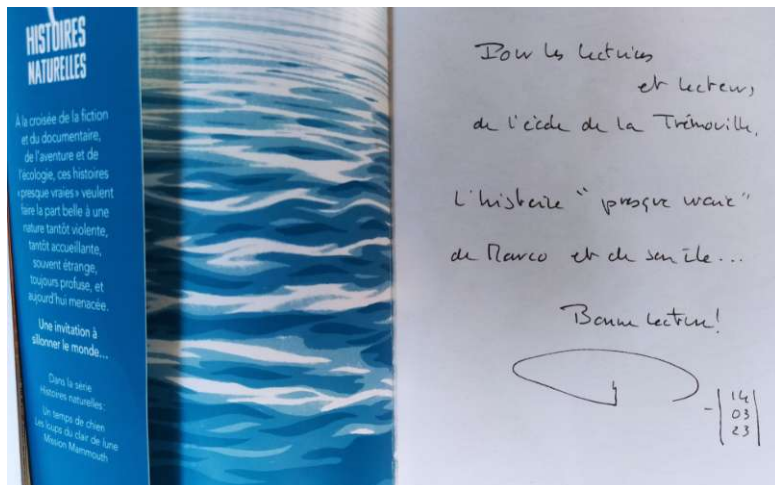 HISTOIRES
NATURELLES
À la croisée de la fiction
et du documentaire,
de l'aventure et de
l'écologie, ces histoires
«presque vraies» veulent
faire la part belle à une
nature tantôt violente,
tantôt accueillante,
souvent étrange,
toujours profuse, et
aujourd'hui menacée.
Une invitation à
sillonner le monde...
Dans la série
Histoires naturelles :
Un temps de chien
Les loups du clair de lune
Mission Mammouth
Pour les lectrices
et lecteurs,
de l'école de la Trémouille,
L'histoire "presque vraie"
de Marco et de son île...
Bonne lecture!
14
03
23